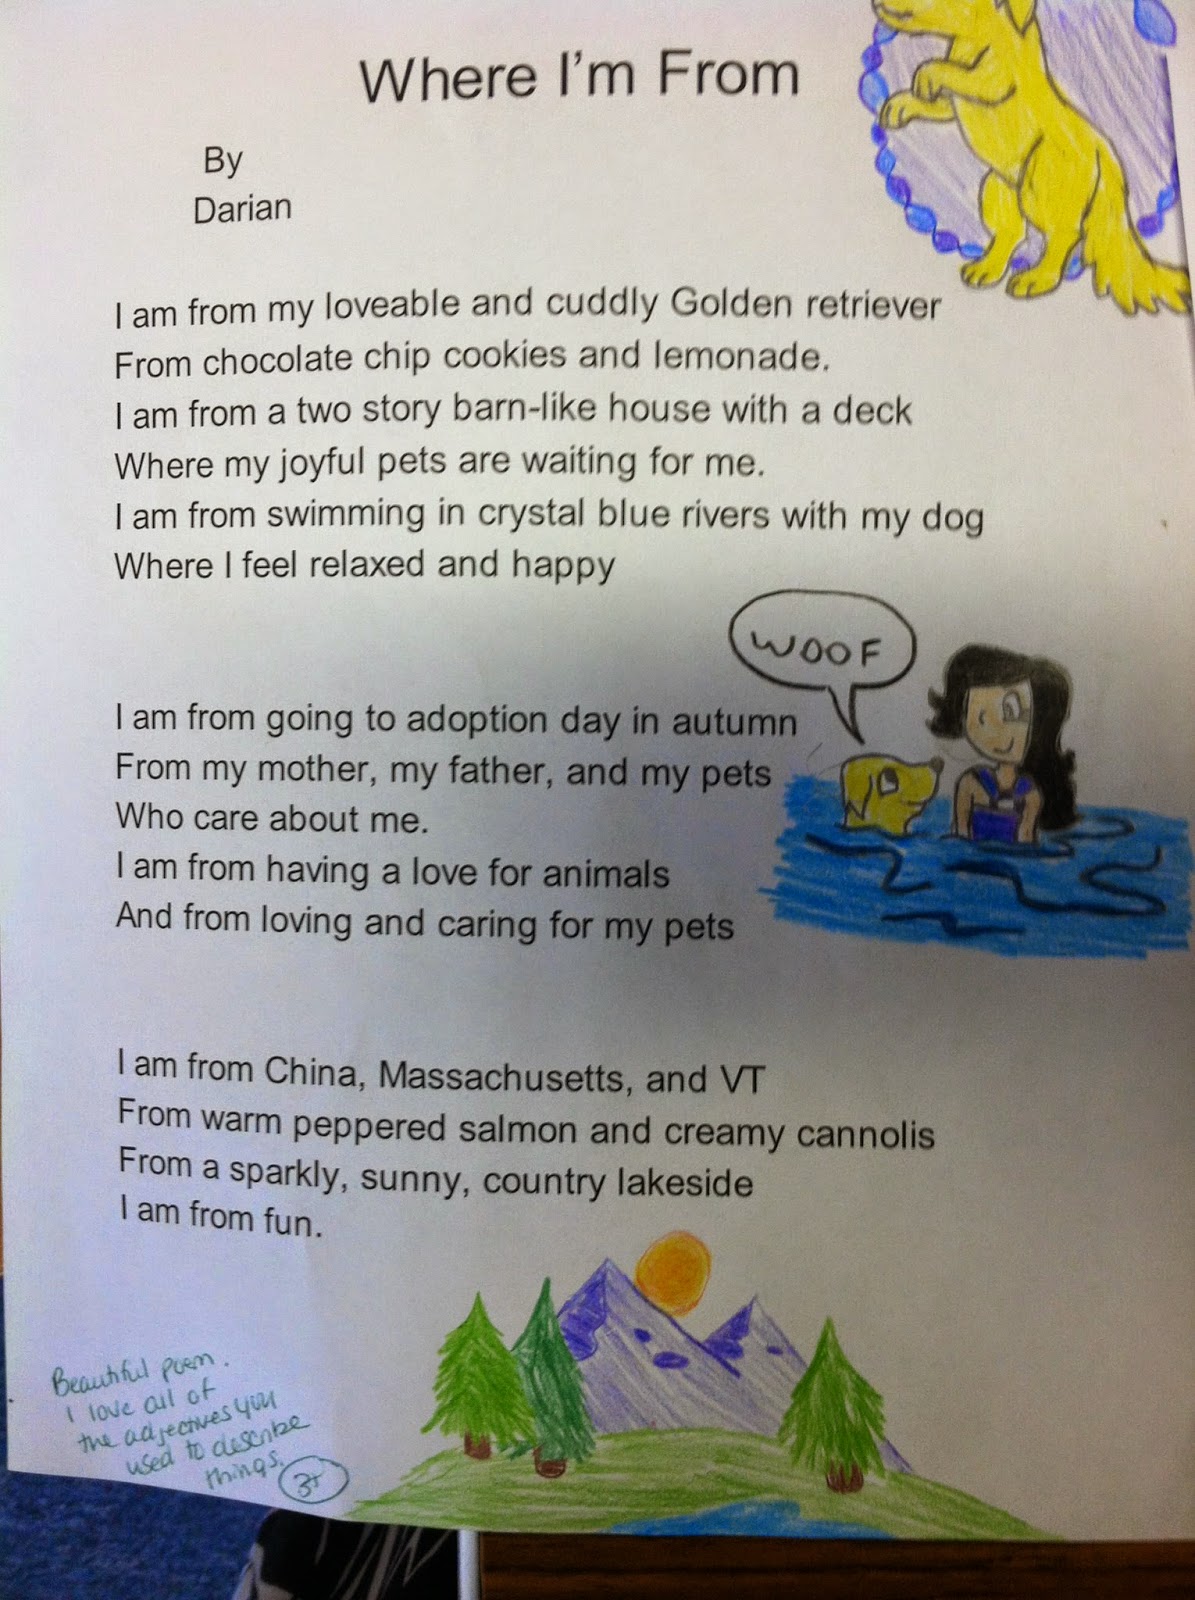 Where I'm From
By
Darian
I am from my loveable and cuddly Golden retriever
From chocolate chip cookies and lemonade.
I am from a two story barn-like house with a deck
Where my joyful pets are waiting for me.
I am from swimming in crystal blue rivers with my dog
Where I feel relaxed and happy
WOOF
I am from going to adoption day in autumn
From my mother, my father, and my pets
Who care about me.
I am from having a love for animals
And from loving and caring for my pets
I am from China, Massachusetts, and VT
From warm peppered salmon and creamy cannolis
From a sparkly, sunny, country lakeside
I am from fun.
Beautiful poem.
I love all of
the adjectives you
used to describe
things.
3+